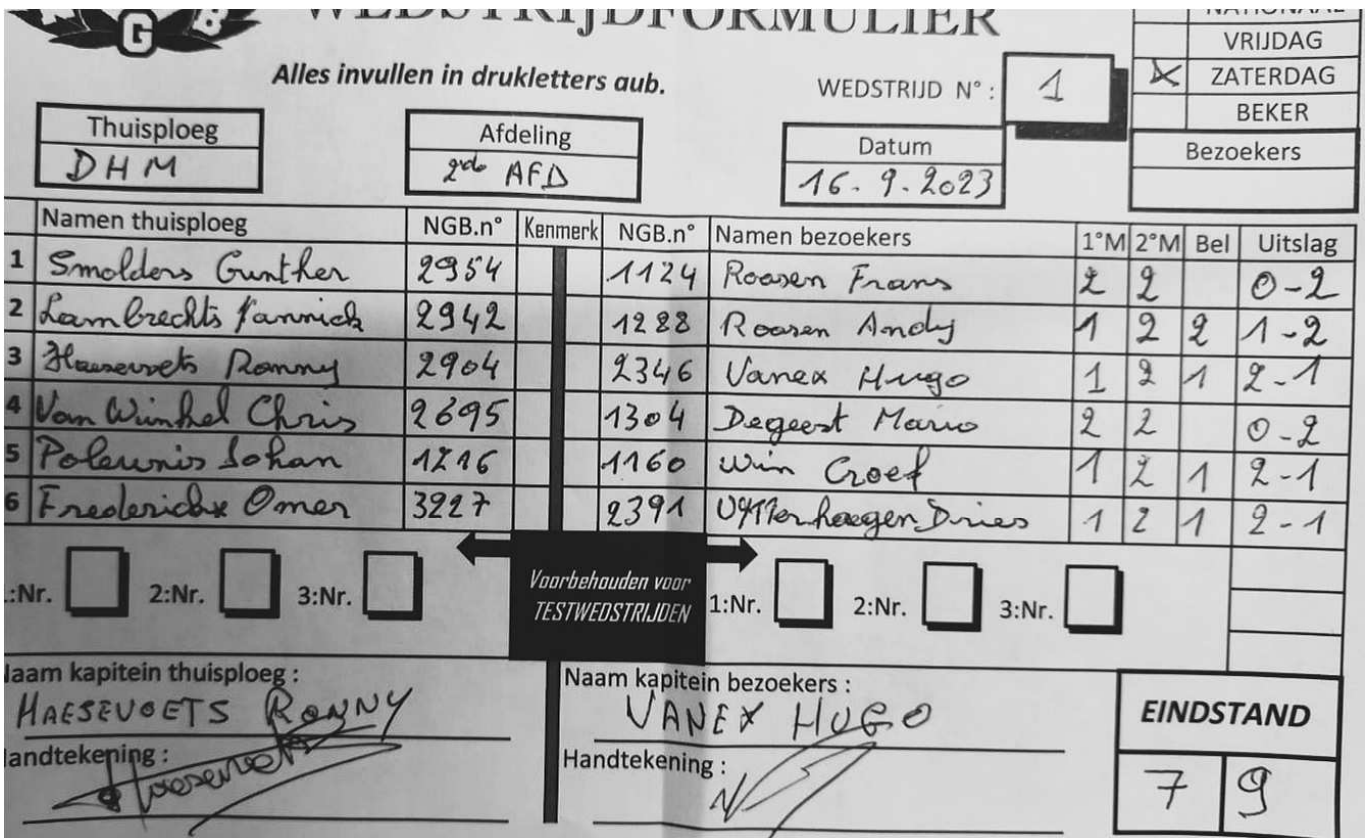 G B
WEDSTRIJDFORMULIER
NATIONAAL
VRIJDAG
Alles invullen in drukletters aub.
WEDSTRIJD N° : 1
X ZATERDAG
BEKER
Thuisploeg
DHM
Afdeling
2de AFD
Datum
16.9.2023
Bezoekers
Namen thuisploeg NGB.n° Kenmerk NGB.n° Namen bezoekers 1°M 2°M Bel Uitslag
1 Smolders Gunther 2954 1124 Roosen Frans 2 2 0-2
2 Lambrechts Yannick 2942 1288 Roosen Andy 1 2 2 1-2
3 Haesevoets Ronny 2904 2346 Vanex Hugo 1 2 1 2-1
4 Van Winkel Chris 2695 1304 Degeest Mario 2 2 0-2
5 Poleunis Johan 1216 1160 Win Croef 1 2 1 2-1
6 Frederickx Omer 3227 2391 Uytterhaegen Dries 1 2 1 2-1
:Nr. 2:Nr. 3:Nr.
Voorbehouden voor
TESTWEDSTRIJDEN
1:Nr. 2:Nr. 3:Nr.
Naam kapitein thuisploeg :
HAESEVOETS RONNY
Handtekening :
Naam kapitein bezoekers :
VANEX HUGO
Handtekening :
EINDSTAND
7 9